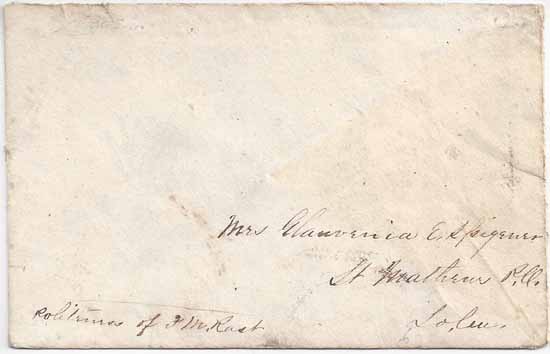 Mrs Glauvenia E. Spigener
St Mathews P.O.
So. Ca.
politness of J M. Rast